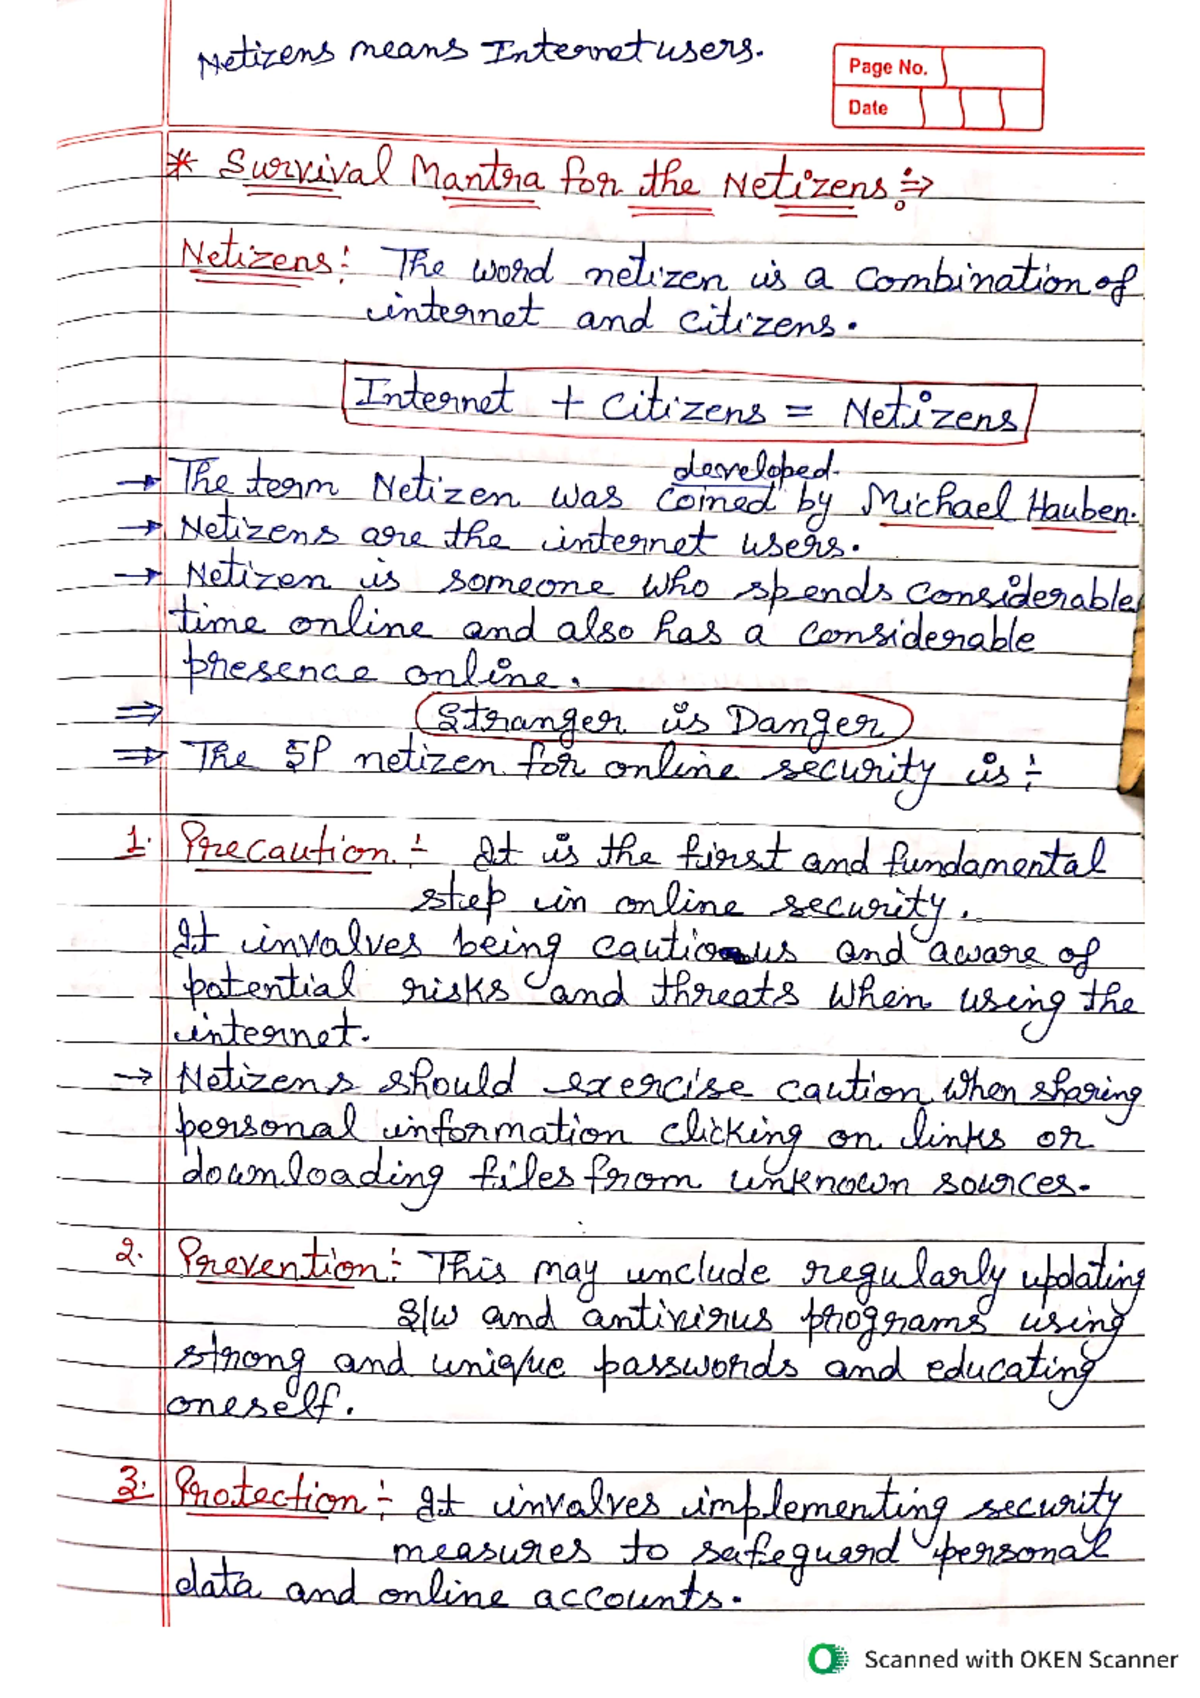 Netizens means Internet users.
Page No.
Date
* Survival Mantra for the Netizens :⇒
Netizens : The word netizen is a combination of
internet and citizens.
Internet + citizens = Netizens
developed.
→ The term Netizen was coined by Michael Hauben.
→ Netizens are the internet users.
→ Netizen is someone who spends considerable
time online and also has a considerable
presence online.
⇒ Stranger is Danger
⇒ The 5P netizen for online security is :-
1. Precaution :- It is the first and fundamental
step in online security.
It invalves being cautious and aware of
potential risks and threats when using the
internet.
→ Netizens should exercise caution when sharing
personal information clicking on links or
downloading files from unknown sources.
2. Prevention :- This may unclude regularly updating
S/w and antivirus programs using
strong and unique passwords and educating
oneself.
3. Protection :- It invalves implementing security
measures to safeguard personal
data and online accounts.
Scanned with OKEN Scanner